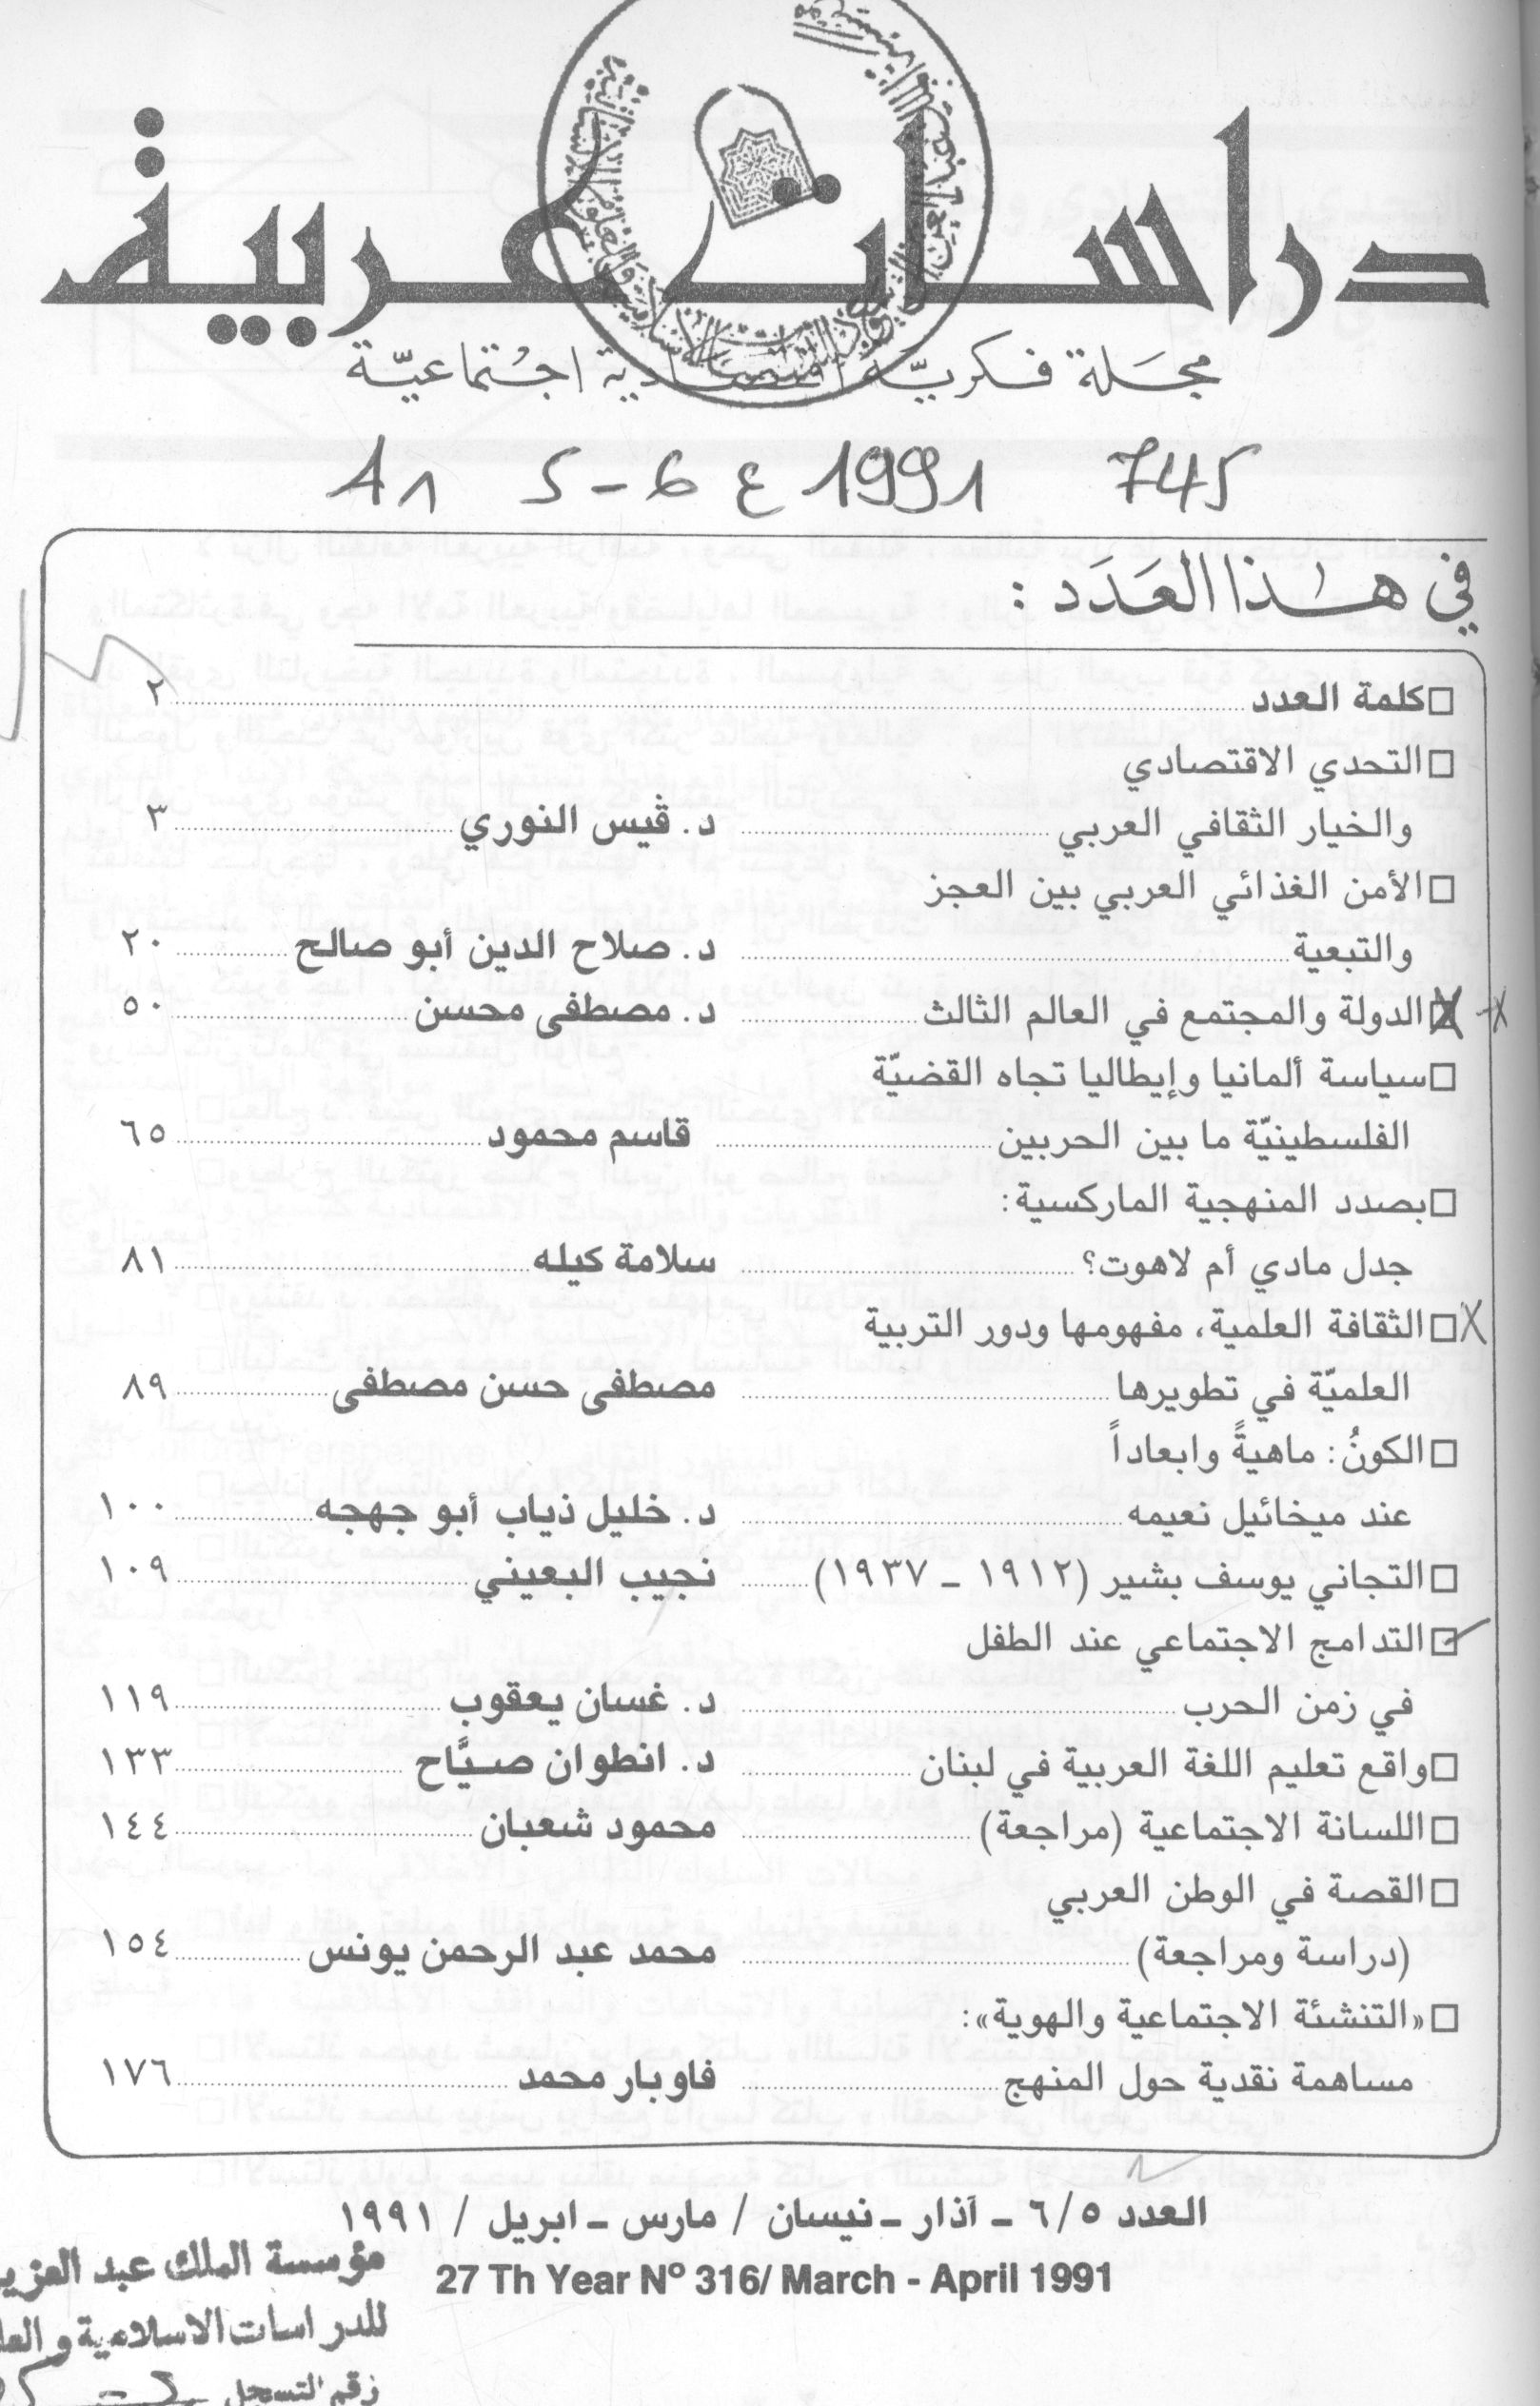 دراسات عربية
مجَلة فكريّة اقتصادية اجْتماعيّة
745 1991 ع 6 - 5 A1
في هٰذا العَدَد :
كلمة العدد ٢
التحدي الاقتصادي
والخيار الثقافي العربي د. قيس النوري ٣
الأمن الغذائي العربي بين العجز
والتبعية د. صلاح الدين أبو صالح ٢٠
الدولة والمجتمع في العالم الثالث د. مصطفى محسن ٥٠
سياسة ألمانيا وإيطاليا تجاه القضيّة
الفلسطينيّة ما بين الحربين قاسم محمود ٦٥
بصدد المنهجية الماركسية:
جدل مادي أم لاهوت؟ سلامة كيله ٨١
الثقافة العلمية، مفهومها ودور التربية
العلميّة في تطويرها مصطفى حسن مصطفى ٨٩
الكونُ: ماهيةً وابعاداً
عند ميخائيل نعيمه د. خليل ذياب أبو جهجه ١٠٠
التجاني يوسف بشير (١٩١٢ ـ ١٩٣٧) نجيب البعيني ١٠٩
التدامج الاجتماعي عند الطفل
في زمن الحرب د. غسان يعقوب ١١٩
واقع تعليم اللغة العربية في لبنان د. انطوان صيَّاح ١٣٣
اللسانة الاجتماعية (مراجعة) محمود شعبان ١٤٤
القصة في الوطن العربي
(دراسة ومراجعة) محمد عبد الرحمن يونس ١٥٤
«التنشئة الاجتماعية والهوية»:
مساهمة نقدية حول المنهج فاوبار محمد ١٧٦
العدد ٦/٥ ـ آذار ـ نيسان / مارس ـ ابريل / ١٩٩١
27 Th Year Nº 316/ March - April 1991
مؤسسة الملك عبد العزيز
للدراسات الاسلامية و
رقم التسجيل